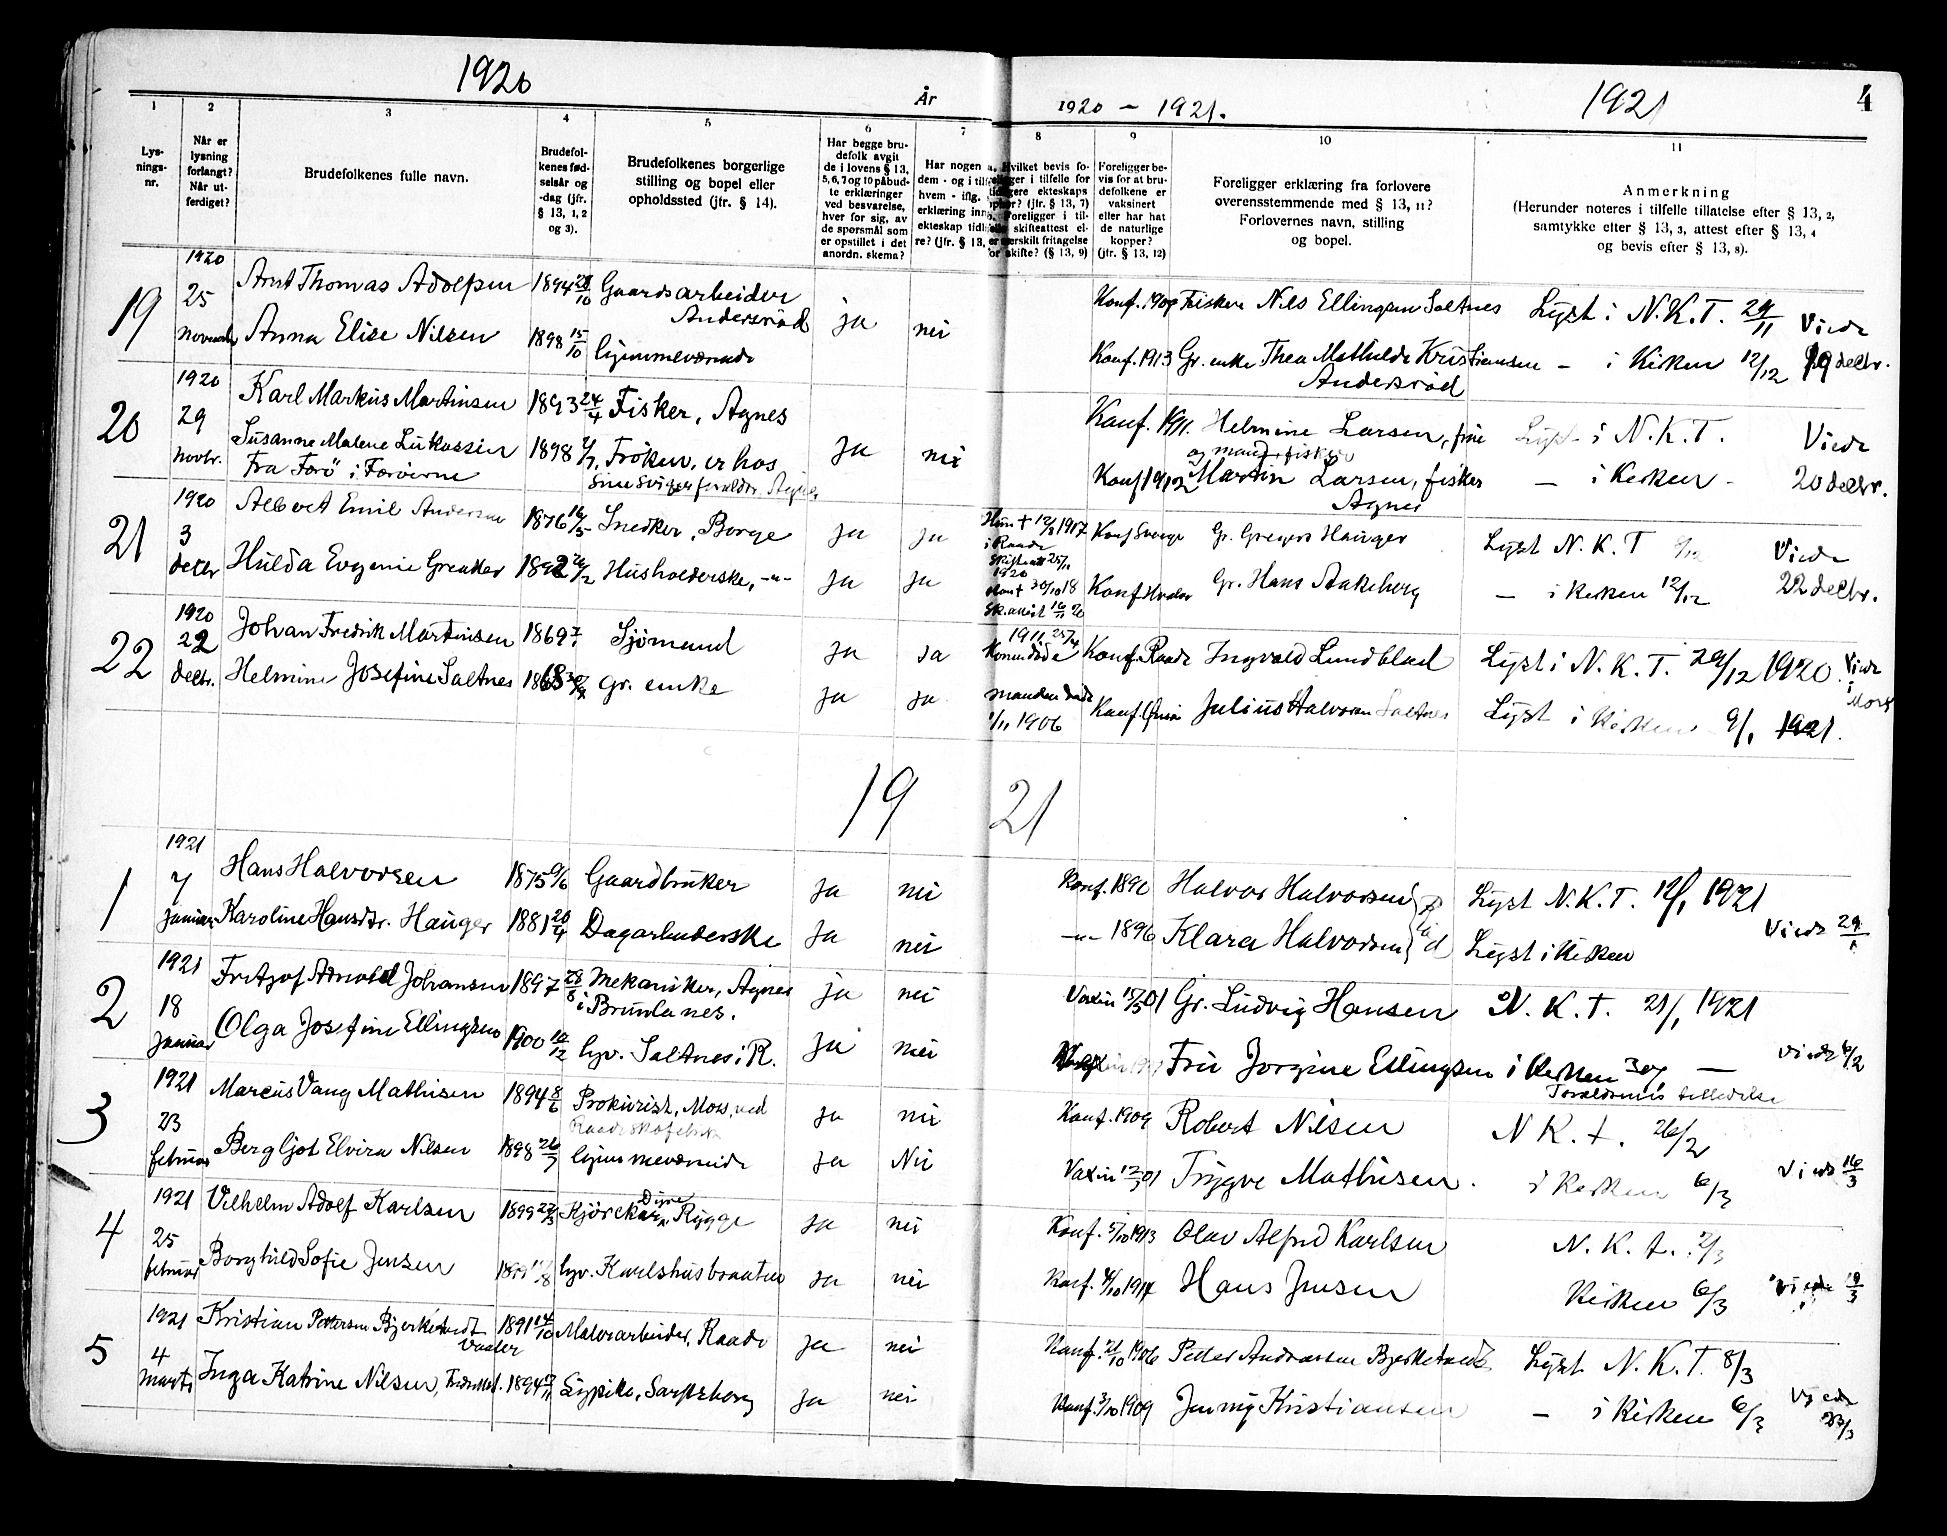 1920
År
1920 – 1921.
1921
4
1
2
3
4
5
6
7
8
9
10
11
Lys-
nings-
nr.
Når er
lysning
forlangt?
Når ut-
ferdiget?
Brudefolkenes fulle navn.
Brudefol-
kenes fød-
selsår og
-dag (jfr.
§ 13, 1, 2
og 3).
Brudefolkenes borgerlige
stilling og bopel eller
opholdssted (jfr. § 14).
Har begge bru-
defolk avgit
de i lovens § 13,
5, 6, 7 og 10 påbud-
te erklæringer
ved besvarelse,
hver for sig, av
de spørsmål som
er opstillet i det
anordn. skema?
Har nogen a
dem - og i tilf
hvem - iflg.
erklæring inng
ekteskap tidli
re? (jfr. § 13,
Hvilket bevis fo-
ger i tilfelle for
gere ekteskaps
? (jfr. § 13, 7)
Foreligger i til-
skifteattest el-
særskilt fritagelse
for skifte? (§ 13, 9)
Foreligger be-
vis for at bru-
defolkene er
vaksinert
eller har hat
de naturlige
kopper?
(jfr. § 13, 12)
Foreligger erklæring fra forlovere
overensstemmende med § 13, 11?
Forlovernes navn, stilling
og bopel.
Anmerkning
(Herunder noteres i tilfelle tillatelse efter § 13, 2,
samtykke efter § 13, 3, attest efter § 13, 4
og bevis efter § 13, 8).
19
1920
25
Novembr
Arnt Thomas Adolfsen 1894 28/10 Gaardsarbeider
Andersrød ja nei
Konf. 1909 Fisker Nils Ellingsen Saltnes Lyst i N.K.T. 29/11 Viede
Anna Elise Nilsen 1898 15/10 hjemmeværende
Konf. 1913 Gr. enke Thea Mathilde Kristiansen – i Kirken 12/12 19 decbr.
Andersrød
20
1920
29
novbr.
Karl Markus Martinsen 1893 24/4 Fisker, Agnes
ja nei
Konf. 1911. Helmine Larsen, frue Lyst i N.K.T. Viede
Susanne Malene Lukassen 1898 Frøken, er hos
Fra Færøerne
Sine Svigerforeldre, Agnes
Konf 1912 Martin Larsen, fisker – i Kirken – 20 decbr.
Agnes
21
1920
3
decbr
Albert Emil Andersen 1876 16/5 Snedker, Borge ja ja
Hun † 12/3 1917
i Raade
Konf Sverige Gr. Gregers Hauger Lyst N.K.T Viede
Hulda Evgenie Greaker 1892 Husholderske, -"- ja ja
30/10 18
Gr. Hans Aakeberg – i kirken 12/12 22 decbr.
22
1920
22
decbr.
Johan Fredrik Martinsen 1869 Sjømand ja ja
1911 25/4
Konen døde Konf. Raade Ingvald Lundblad Lyst i N.K.T. 29/12 1920. Viede
i
Moss
Helmine Josefine Saltnes Gr. enke ja ja
manden døde
1/11 1906
Julius Halvorsen Saltnes Lyst i Kirken 9/1 1921.
19 21
1
1921
7
Januar
Hans Halvorsen 1875 Gaardbruker ja nei
Konf. 1890 Halvor Halvorsen Lyst N.K.T. 12/1 1921
Karoline Hansdtr. Hauger 1881 20/4 Dagarbeiderske ja nei
-"- 1896 Klara Halvorsen Lyst i Kirken Viede 29/1
2
1921
18
Januar
Fritjof Arnold Johansen 1897 28/8 Mekaniker, Agnes
i Brunlanes. ja nei
Vaxin 15/5 01 Gr. Ludvig Hansen N.K.T. 21/1 1921
Olga Josefine Ellingsen 1900 10/12 hjv. Saltnes i R. ja nei
Fru Jorgine Ellingsen i Kirken 30/1 — Viede 6/2
Forældrenes tilladelse
3
1921
23
februar
Marcus Vang Mathisen 1894 8/6 Prokurist, Moss, ved
Raade Skofabrik ja nei
Konf. 1909 Robert Nilsen N.K.t. 26/2
Bergljot Elvira Nilsen 1898 26/7 hjemmeværende ja Nei
Vaxin 12/3 01 Trygve Mathisen. i kirken 6/3 Viede 16/3
4
1921
25
februar
Vilhelm Adolf Karlsen 1899 22/3 Kjørekar, Rygge ja nei
Konf. 5/10 1913 Olav Alfred Karlsen N.K.t. 2/3
Borghild Sofie Jensen hjv. Karlshusbraaten ja nei
Konf. 4/10 1914 Hans Jensen Kirken 6/3
5
1921
4
Marts
Kristian Pettersen Bjerketvedt
Vaaler 1891 14/10 Malerarbeider, Raade ja nei
Konf. 21/10 1906 Petter Andreassen Bjerketvedt Lyst N.K.T. 8/3
Inga Katrine Nilsen, Fredrikst. 1894 Sypike, Sarpsborg ja nei
Konf. 3/10 1909 Jenny Kristiansen – i Kirken 6/3 Viede
23/3